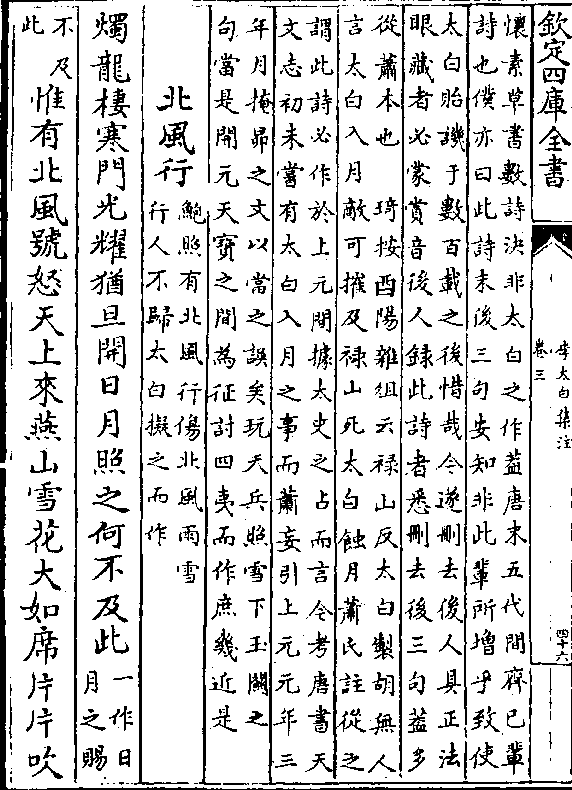 欽定四庫全書
李太白集注
卷三
四十六
懷素草書數詩決非太白之作蓋唐末五代間齊已輩
詩也僕亦曰此詩末後三句安知非此輩所增乎致使
太白貽譏于數百載之後惜哉今遂刪去後人具正法
眼藏者必蒙賞音後人録此詩者悉刪去後三句蓋多
從蕭本也　琦按酉陽雜俎云禄山反太白製胡無人
言太白入月敵可摧及禄山死太白蝕月蕭氏註從之
謂此詩必作於上元間據太史之占而言今考唐書天
文志初未嘗有太白入月之事而蕭妄引上元元年三
年月掩昴之文以當之誤矣玩天兵照雪下玉關之
句當是開元天寶之間為征討四夷而作庶幾近是
北風行
鮑照有北風行傷北風雨雪
行人不歸太白擬之而作
燭龍棲寒門光耀猶旦開日月照之何不及此
一作日
月之賜
不及
此
惟有北風號怒天上來燕山雪花大如席片片吹